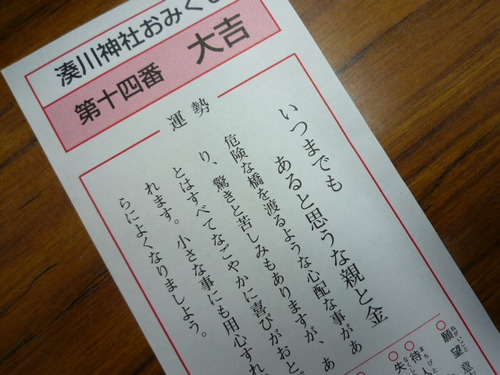 湊川神社おみくじ
第十四番 大吉
運勢
いつまでも
あると思うな親と金
危険な橋を渡るような心配な事があ
り、驚きと苦しみもありますが、あ
とはすべてなごやかに喜びがおと
れます。小さな事にも用心すれ
らによくなりましよう。
願望
待人
失